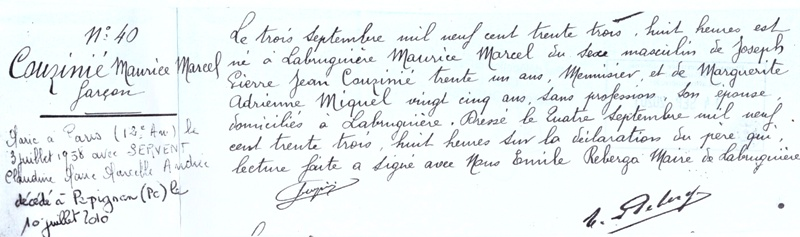 N° 40
Couzinié Maurice Marcel
garçon
Marié à Paris (12e An) le
3 juillet 1958 avec SERVENT
Claudine Marie Marcelle Andrée
décédé à Perpignan (Po) le
10 juillet 2010
Le trois Septembre mil neuf cent trente trois, huit heures est
né à Labruguière Maurice Marcel du sexe masculin de Joseph
Pierre Jean Couzinié trente un ans, Menuisier, et de Marguerite
Adrienne Miquel vingt cinq ans, sans profession, son épouse
domiciliés à Labruguière. Dressé le Quatre Septembre mil neuf
cent trente trois, huit heures sur la déclaration du père qui,
lecture faite a signé avec Nous Emile Reberga Maire de Labruguière